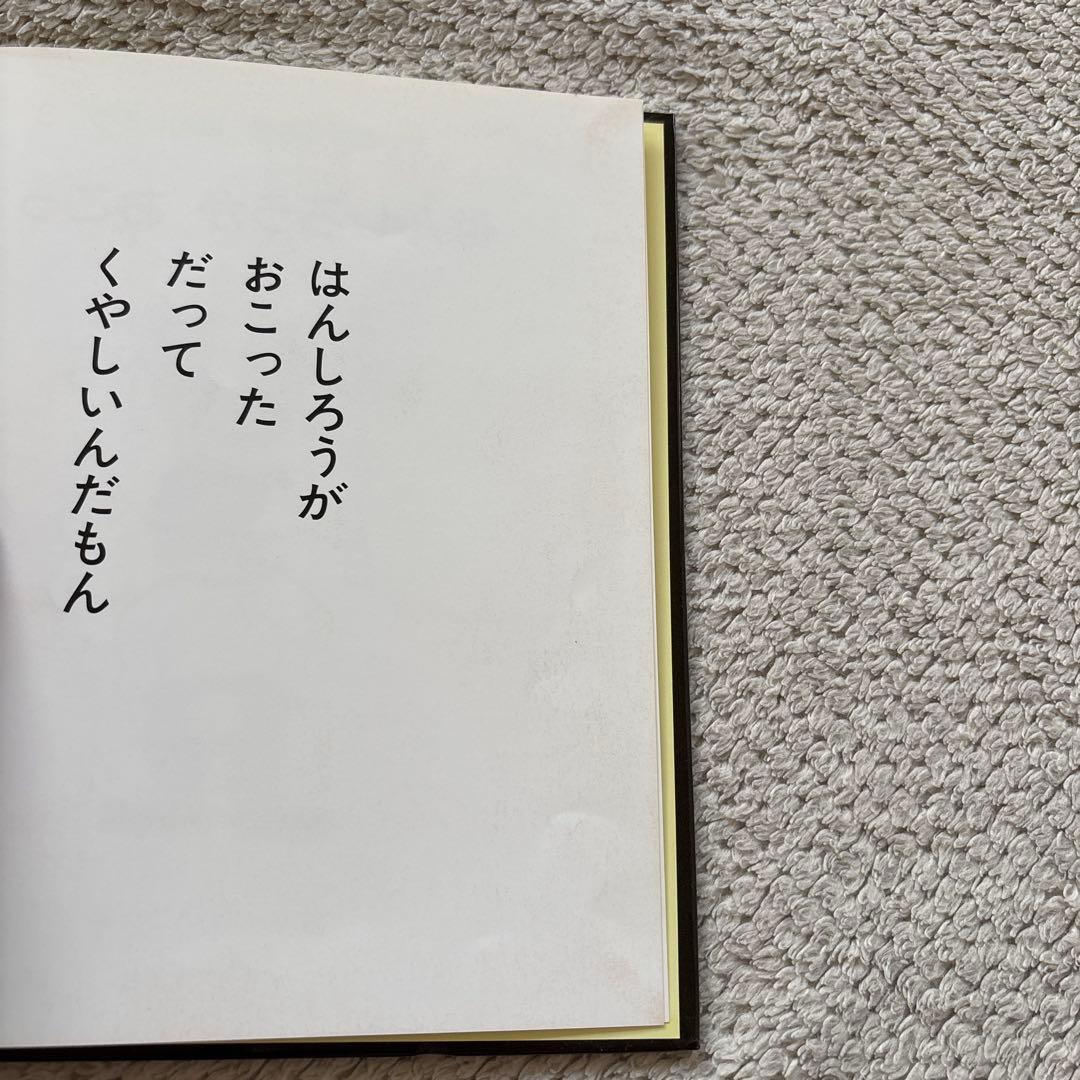 はんしろうが
おこった
だって
くやしいんだもん